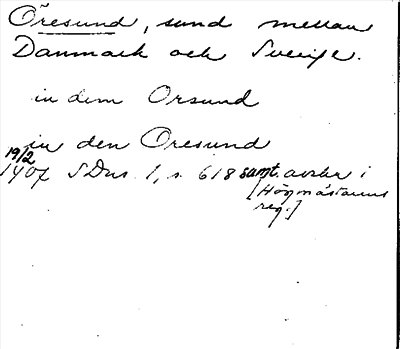 Öresund, sund mellan
Danmark och Sverige.
in dem Orsund
in den Oresund
19/2
1407 SDns. 1, s. 618 samt. avskr i
[Högmästarens
reg.]